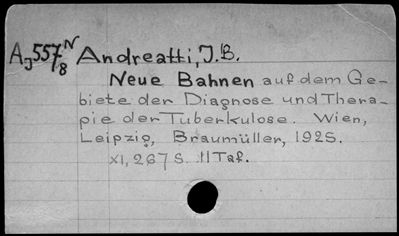 AJ557 N/8 Andreatti, J.B.
Neue Bahnen auf dem Ge-
biete der Diagnose und Thera-
pie der Tuberkulose. Wien,
Leipzig, Braumüller, 1925.
XI, 267 S. 11 Taf.